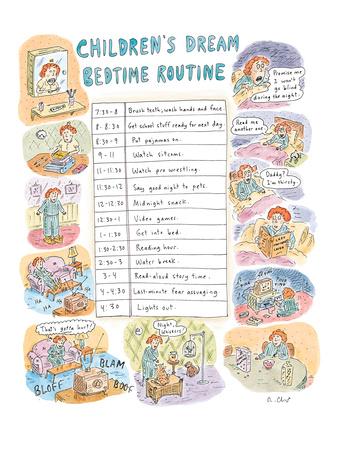 CHILDREN'S DREAM
BEDTIME ROUTINE
7:30-8 Brush teeth, wash hands and face.
8-8:30 Get school stuff ready for next day.
8:30-9 Put pajamas on.
9-11 Watch sitcoms.
11-11:30 Watch pro wrestling.
11:30-12 Say good night to pets.
12-12:30 Midnight snack.
12:30-1 Video games.
1-1:30 Get into bed.
1:30-2:30 Reading hour.
2:30-3 Water break.
3-4 Read-aloud story time.
4-4:30 Last-minute fear assuaging.
4:30 Lights out.
Promise me
I won't
go blind
during the night.
Read me
another one.
Daddy?
I'm thirsty.
PING
PING
HA
HA
HA
HA
That's gotta hurt!
BLAM
BLOFF
BOOF
Night,
Whiskers!
R. Chst